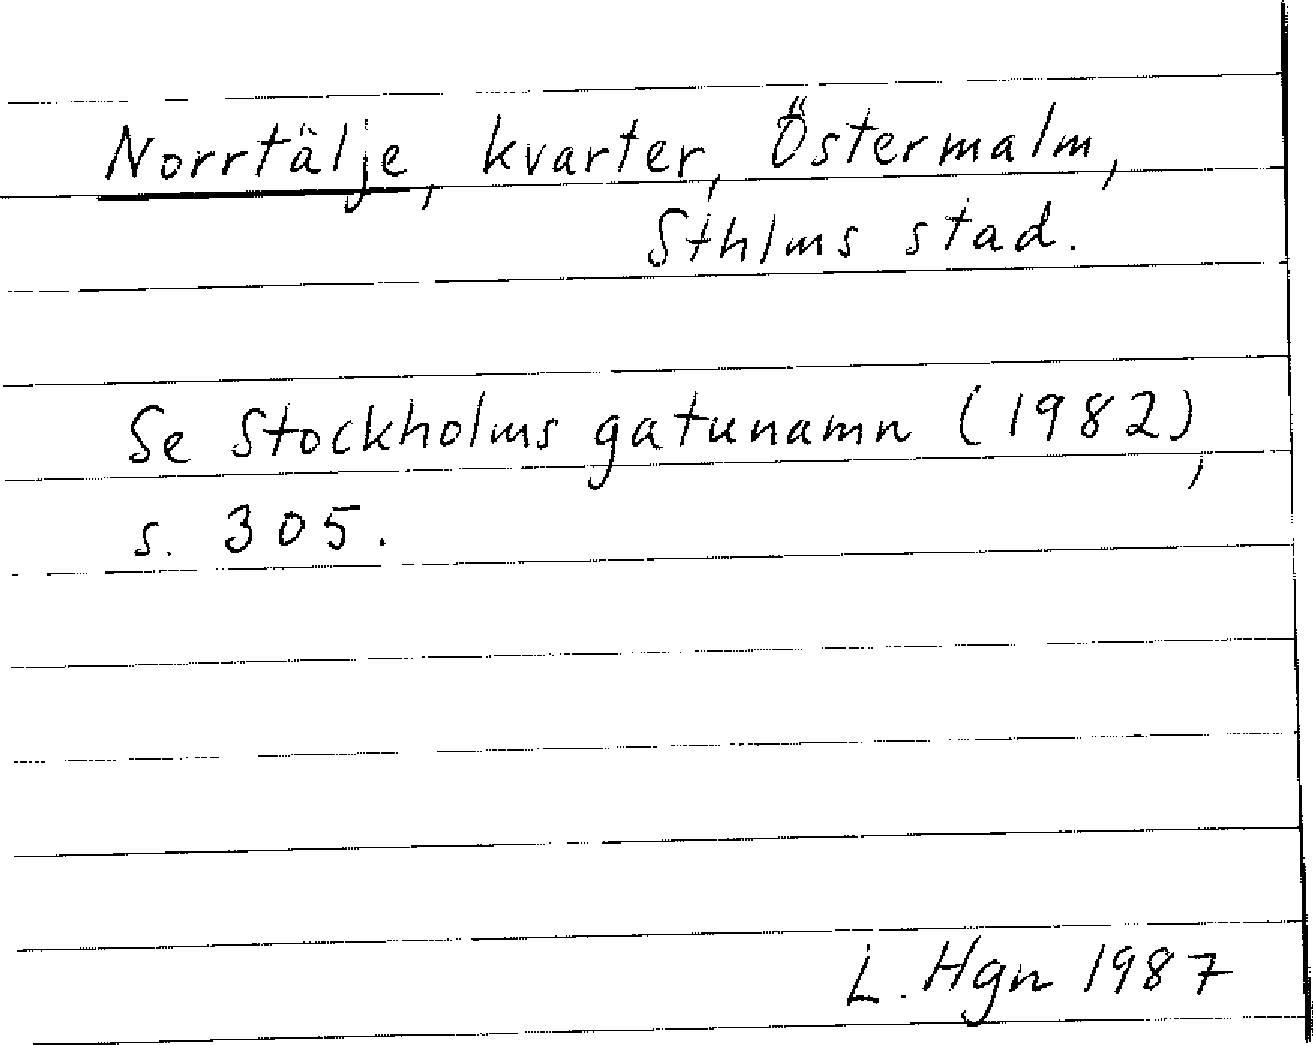 Norrtälje, kvarter, Östermalm,
Sthlms stad.
Se Stockholms gatunamn (1982),
s. 305.
L. Hgn 1987